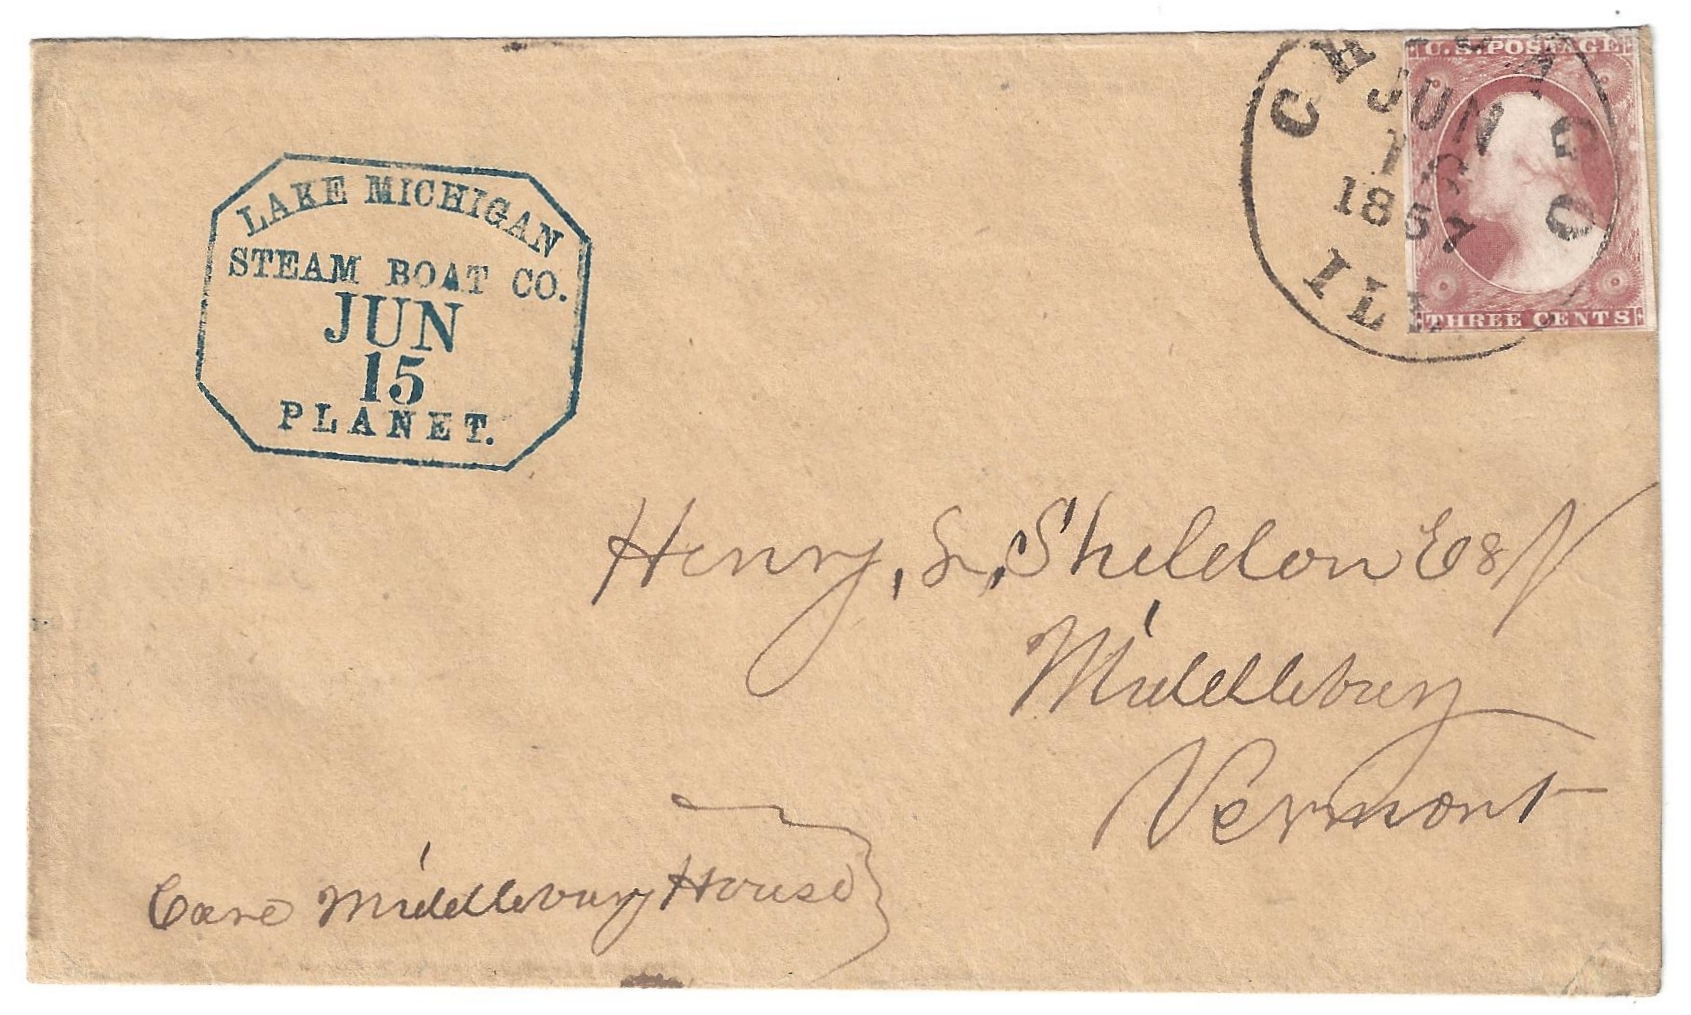 LAKE MICHIGAN
STEAM BOAT CO.
JUN
15
PLANET.
CHICAGO
JUN
1857
ILL
U.S. POSTAGE
THREE CENTS
Henry, L, Sheldon Esq
Middlebury
Vermont
Care Middlebury House